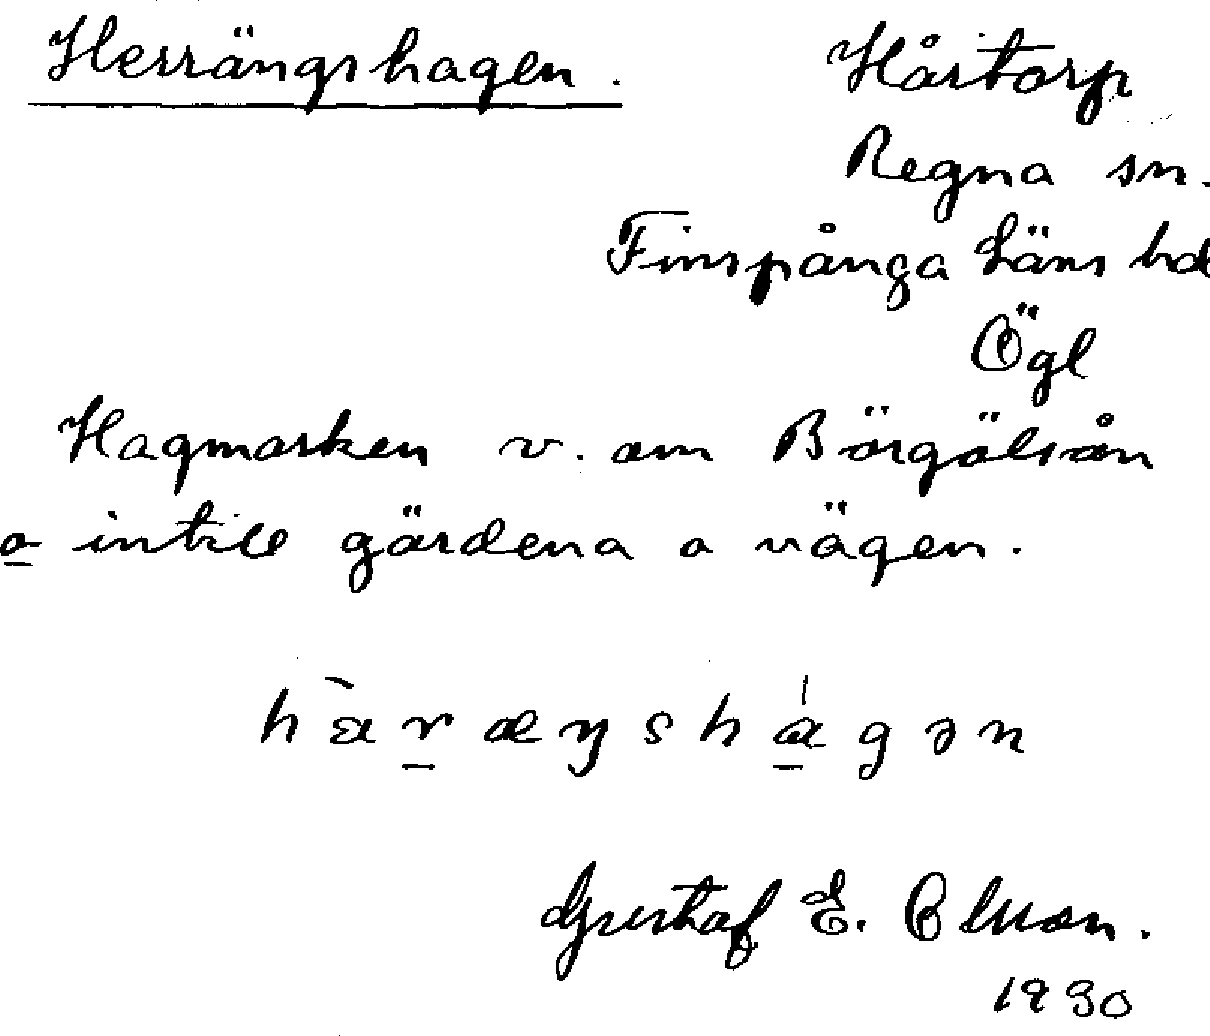 Herrängshagen.
Hårtorp
Regna sn.
Finspånga läns hd
Ögl
Hagmarken v. om Börgölsån
o intill gärdena o vägen.
hàræŋshágən
Gustaf E. Olsson.
1930